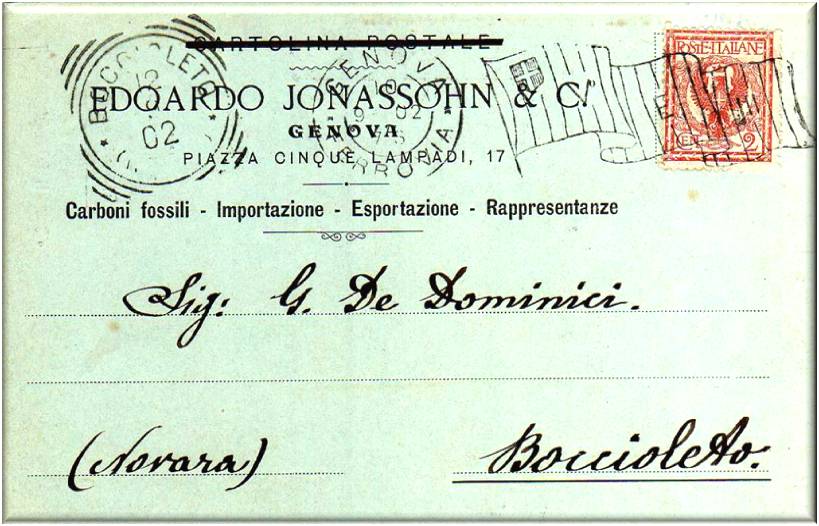 CARTOLINA POSTALE
EDOARDO JONASSOHN & C.
GENOVA
PIAZZA CINQUE LAMPADI, 17
Carboni fossili - Importazione - Esportazione - Rappresentanze
BOCCIOLETO
02
GENOVA
FERROVIA
02
POSTE·ITALIANE
2
Sig: G. De Dominici.
(Novara)
Boccioleto: